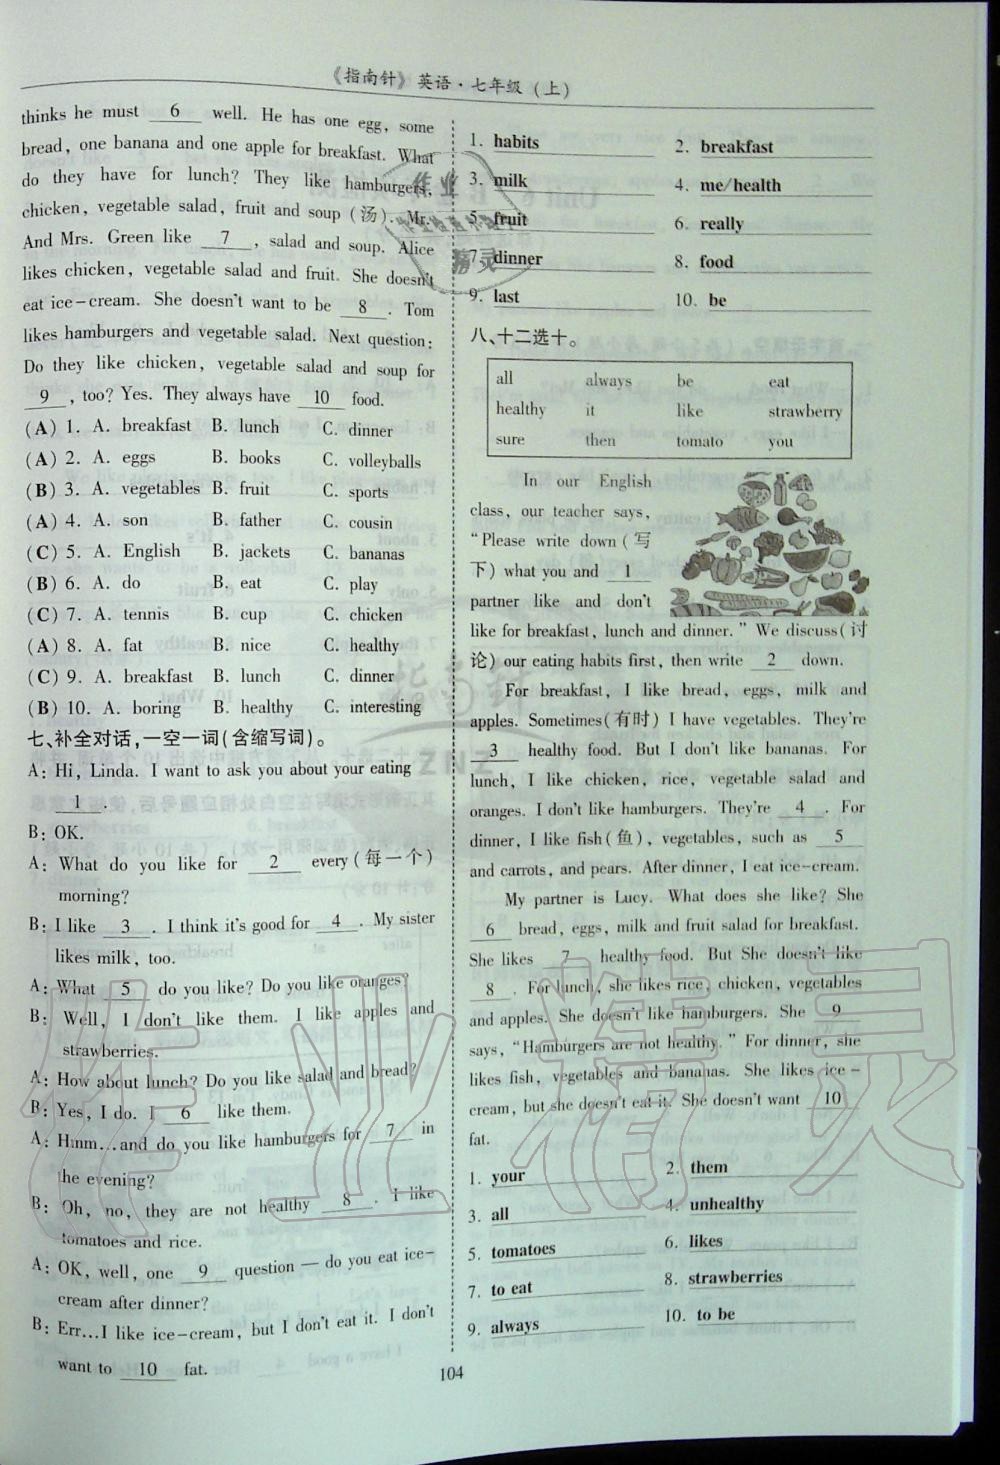 《指南针》英语·七年级(上)
thinks he must 6 well. He has one egg, some
bread, one banana and one apple for breakfast. What
do they have for lunch? They like hamburgers,
chicken, vegetable salad, fruit and soup (汤). Mr.
And Mrs. Green like 7 , salad and soup. Alice
likes chicken, vegetable salad and fruit. She doesn't
eat ice-cream. She doesn't want to be 8 . Tom
likes hamburgers and vegetable salad. Next question:
Do they like chicken, vegetable salad and soup for
9 , too? Yes. They always have 10 food.
(A) 1. A. breakfast B. lunch C. dinner
(A) 2. A. eggs B. books C. volleyballs
(B) 3. A. vegetables B. fruit C. sports
(A) 4. A. son B. father C. cousin
(C) 5. A. English B. jackets C. bananas
(B) 6. A. do B. eat C. play
(C) 7. A. tennis B. cup C. chicken
(A) 8. A. fat B. nice C. healthy
(C) 9. A. breakfast B. lunch C. dinner
(B) 10. A. boring B. healthy C. interesting
七、补全对话,一空一词(含缩写词)。
A: Hi, Linda. I want to ask you about your eating
1 .
B: OK.
A: What do you like for 2 every (每一个)
morning?
B: I like 3 . I think it's good for 4 . My sister
likes milk, too.
A: What 5 do you like? Do you like oranges?
B: Well, I don't like them. I like apples and
strawberries.
A: How about lunch? Do you like salad and bread?
B: Yes, I do. I 6 like them.
A: Hmm...and do you like hamburgers for 7 in
the evening?
B: Oh, no, they are not healthy 8 . I like
tomatoes and rice.
A: OK, well, one 9 question — do you eat ice-
cream after dinner?
B: Err...I like ice-cream, but I don't eat it. I don't
want to 10 fat.
1. habits 2. breakfast
3. milk 4. me/health
5. fruit 6. really
7. dinner 8. food
9. last 10. be
八、十二选十。
all always be eat
healthy it like strawberry
sure then tomato you
In our English
class, our teacher says,
"Please write down (写
下) what you and 1
partner like and don't
like for breakfast, lunch and dinner." We discuss(讨
论) our eating habits first, then write 2 down.
For breakfast, I like bread, eggs, milk and
apples. Sometimes(有时) I have vegetables. They're
3 healthy food. But I don't like bananas. For
lunch, I like chicken, rice, vegetable salad and
oranges. I don't like hamburgers. They're 4 . For
dinner, I like fish(鱼), vegetables, such as 5
and carrots, and pears. After dinner, I eat ice-cream.
My partner is Lucy. What does she like? She
6 bread, eggs, milk and fruit salad for breakfast.
She likes 7 healthy food. But She doesn't like
8 . For lunch, she likes rice, chicken, vegetables
and apples. She doesn't like hamburgers. She 9
says, "Hamburgers are not healthy." For dinner, she
likes fish, vegetables and bananas. She likes ice-
cream, but she doesn't eat it. She doesn't want 10
fat.
1. your 2. them
3. all 4. unhealthy
5. tomatoes 6. likes
7. to eat 8. strawberries
9. always 10. to be
104